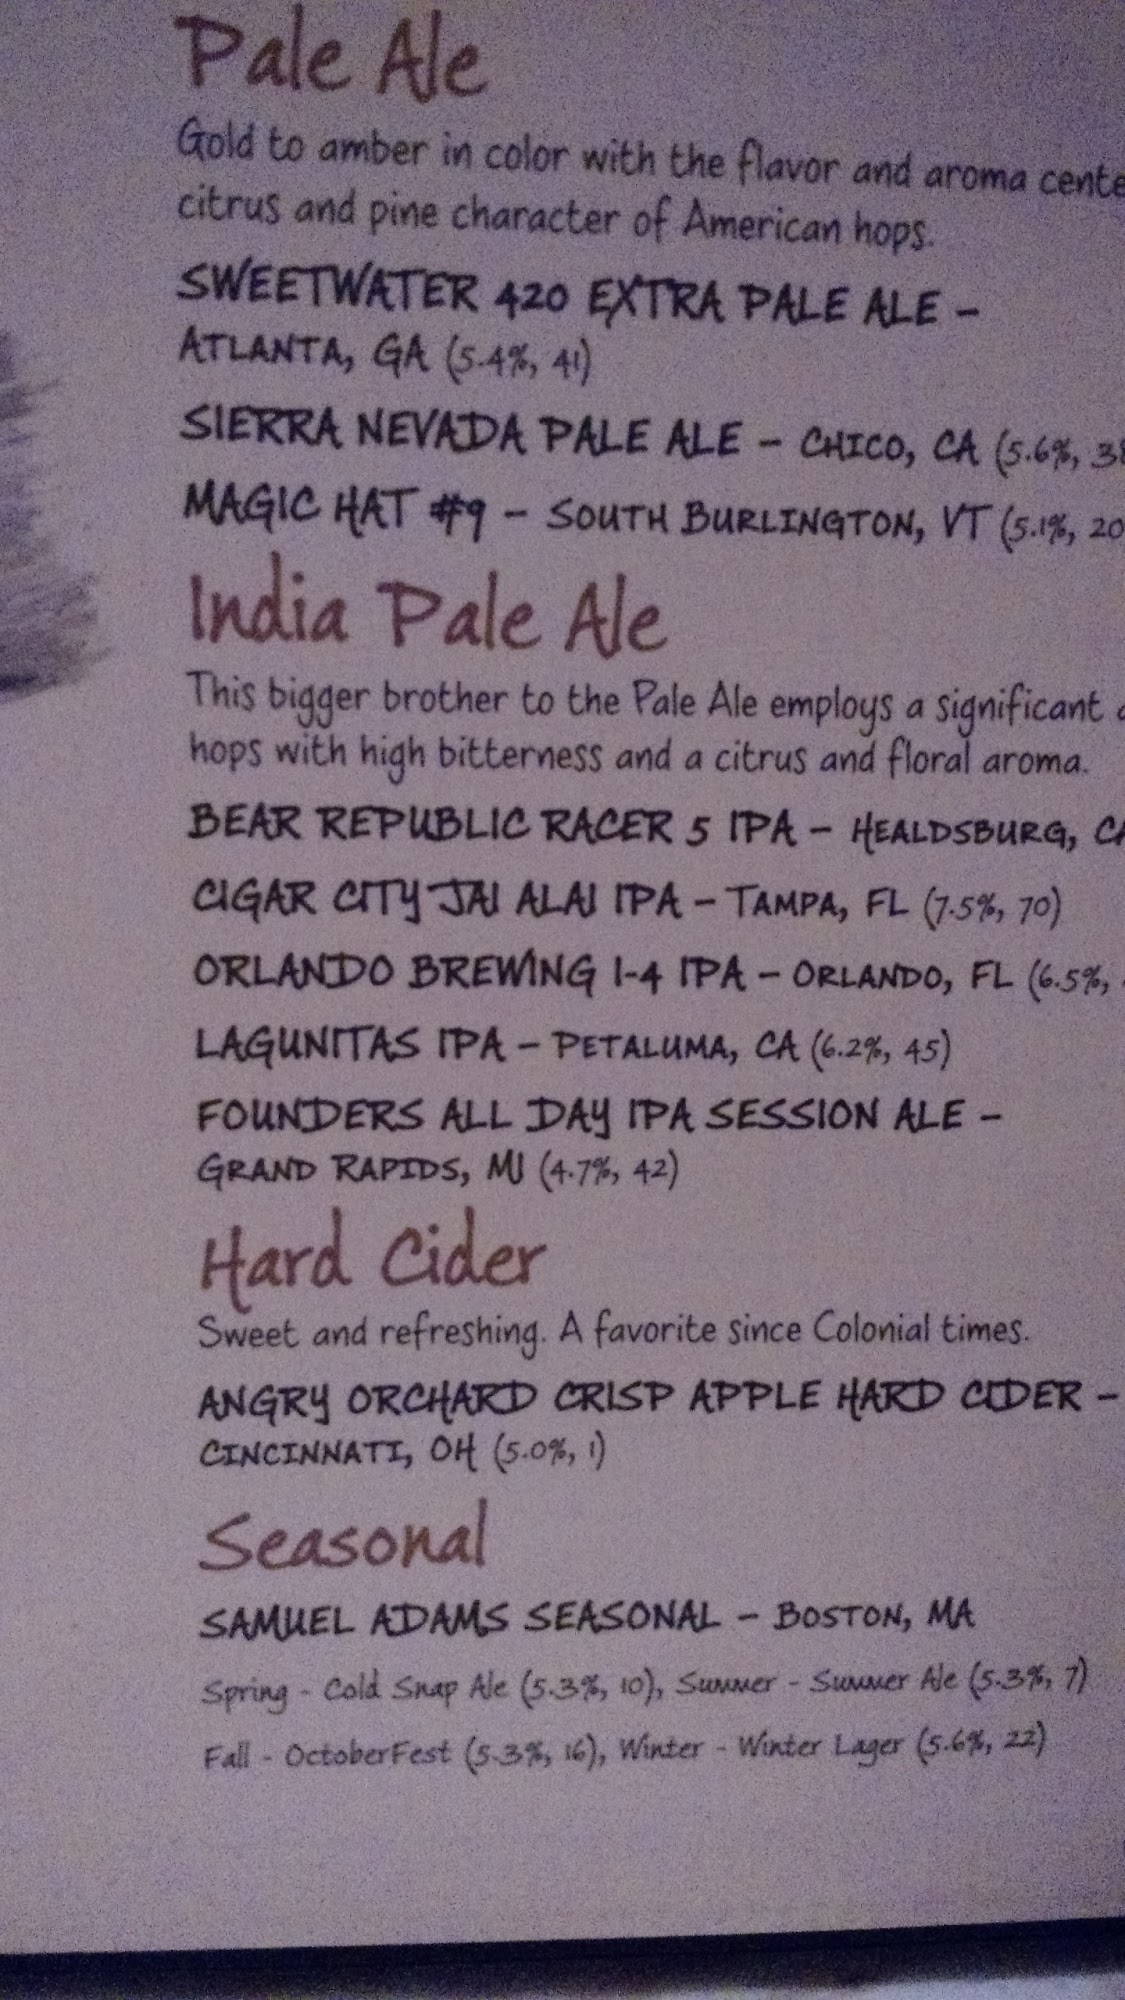 Pale Ale
Gold to amber in color with the flavor and aroma cente
citrus and pine character of American hops.
SWEETWATER 420 EXTRA PALE ALE –
ATLANTA, GA (5.4%, 41)
SIERRA NEVADA PALE ALE – CHICO, CA (5.6%, 38
MAGIC HAT #9 – SOUTH BURLINGTON, VT (5.1%, 20
India Pale Ale
This bigger brother to the Pale Ale employs a significant
hops with high bitterness and a citrus and floral aroma.
BEAR REPUBLIC RACER 5 IPA – HEALDSBURG, CA
CIGAR CITY JAI ALAI IPA – TAMPA, FL (7.5%, 70)
ORLANDO BREWING I-4 IPA – ORLANDO, FL (6.5%,
LAGUNITAS IPA – PETALUMA, CA (6.2%, 45)
FOUNDERS ALL DAY IPA SESSION ALE –
GRAND RAPIDS, MI (4.7%, 42)
Hard Cider
Sweet and refreshing. A favorite since Colonial times.
ANGRY ORCHARD CRISP APPLE HARD CIDER –
CINCINNATI, OH (5.0%, 1)
Seasonal
SAMUEL ADAMS SEASONAL – BOSTON, MA
Spring - Cold Snap Ale (5.3%, 10), Summer - Summer Ale (5.3%, 7)
Fall - OctoberFest (5.3%, 16), Winter - Winter Lager (5.6%, 22)